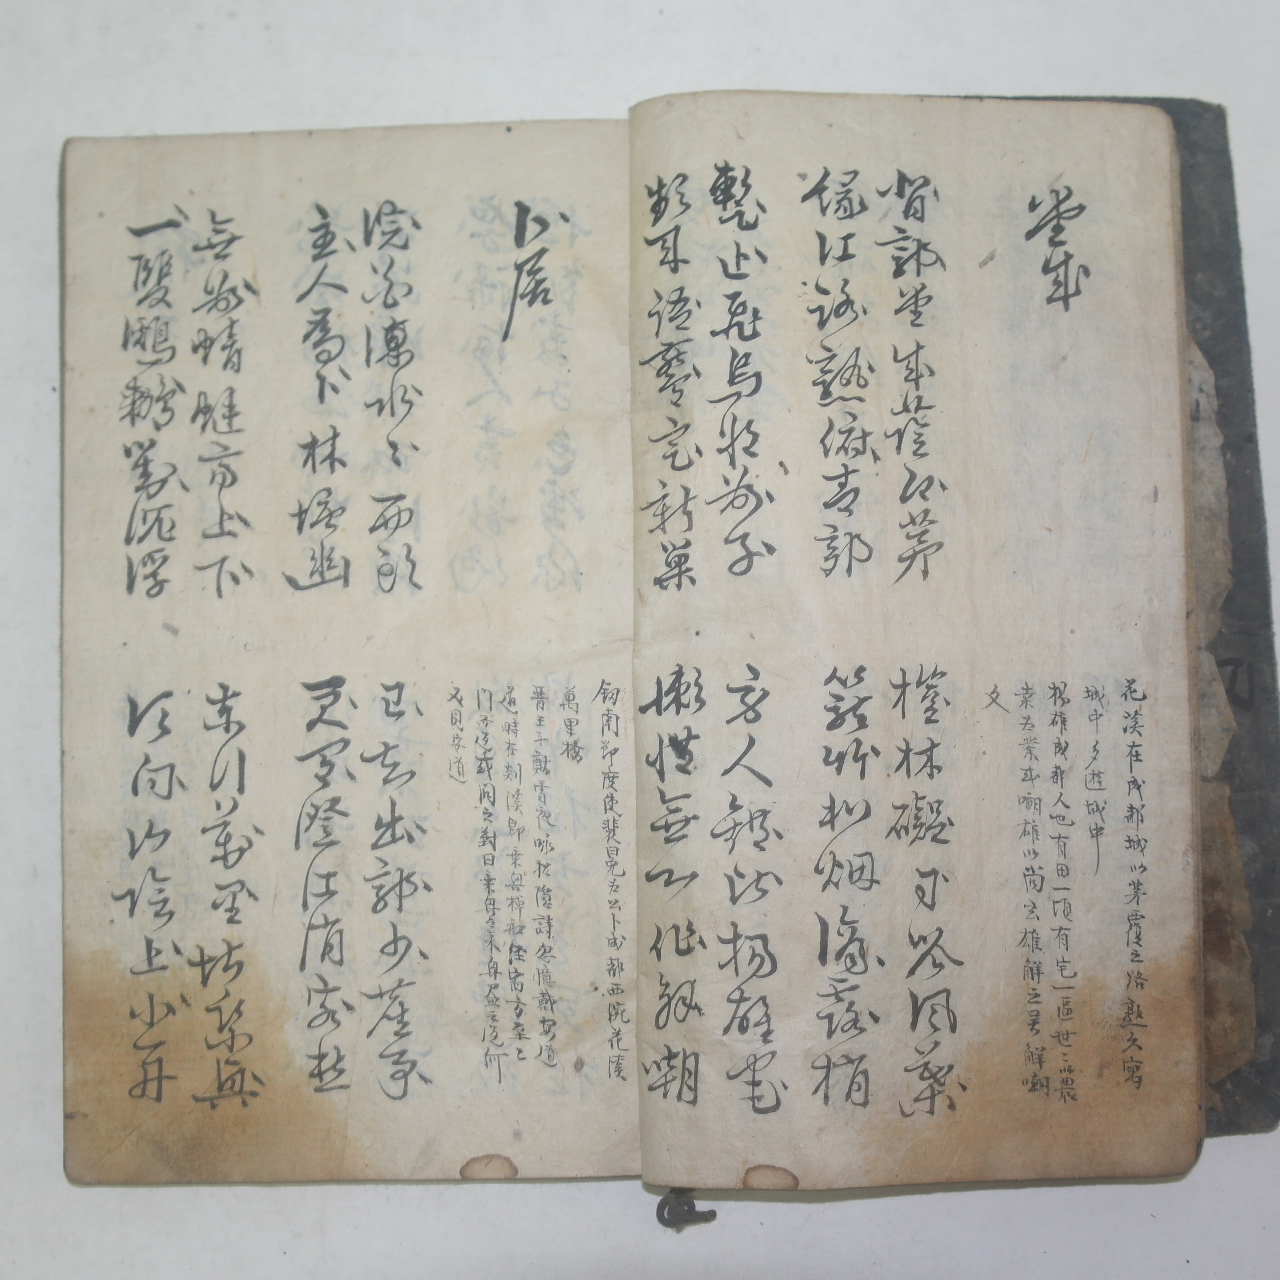 堂成
背郭堂成蔭白茅
緣江路熟俯青郊
榿林礙日吟風葉
籠竹和烟滴露梢
暫止飛烏將數子
頻來語燕定新巢
旁人錯比揚雄宅
懶惰無心作解嘲
花溪在成都城以茅覆之路熟久寓
城中多遊城中
揚雄成都人也有田一頃有宅一區世〻以農
桑为業或嘲雄以尚玄雄解之号解嘲
文
卜居
浣花溪水〻西頭
主人為卜林塘幽
已知出郭少塵事
更有澄江消客愁
無數蜻蜓齊上下
一雙鸂鶒對沉浮
東行萬里堪乘興
須向山陰上小舟
釼南節度使裴冕为公卜成都西浣花溪
萬里橋
晋王子猷雪夜咏招隱詩忽憶戴安道
道時在剡溪即乘興棹船經宿方至〻
門不返或問之對曰乘興而來興盡而返何
必見安道